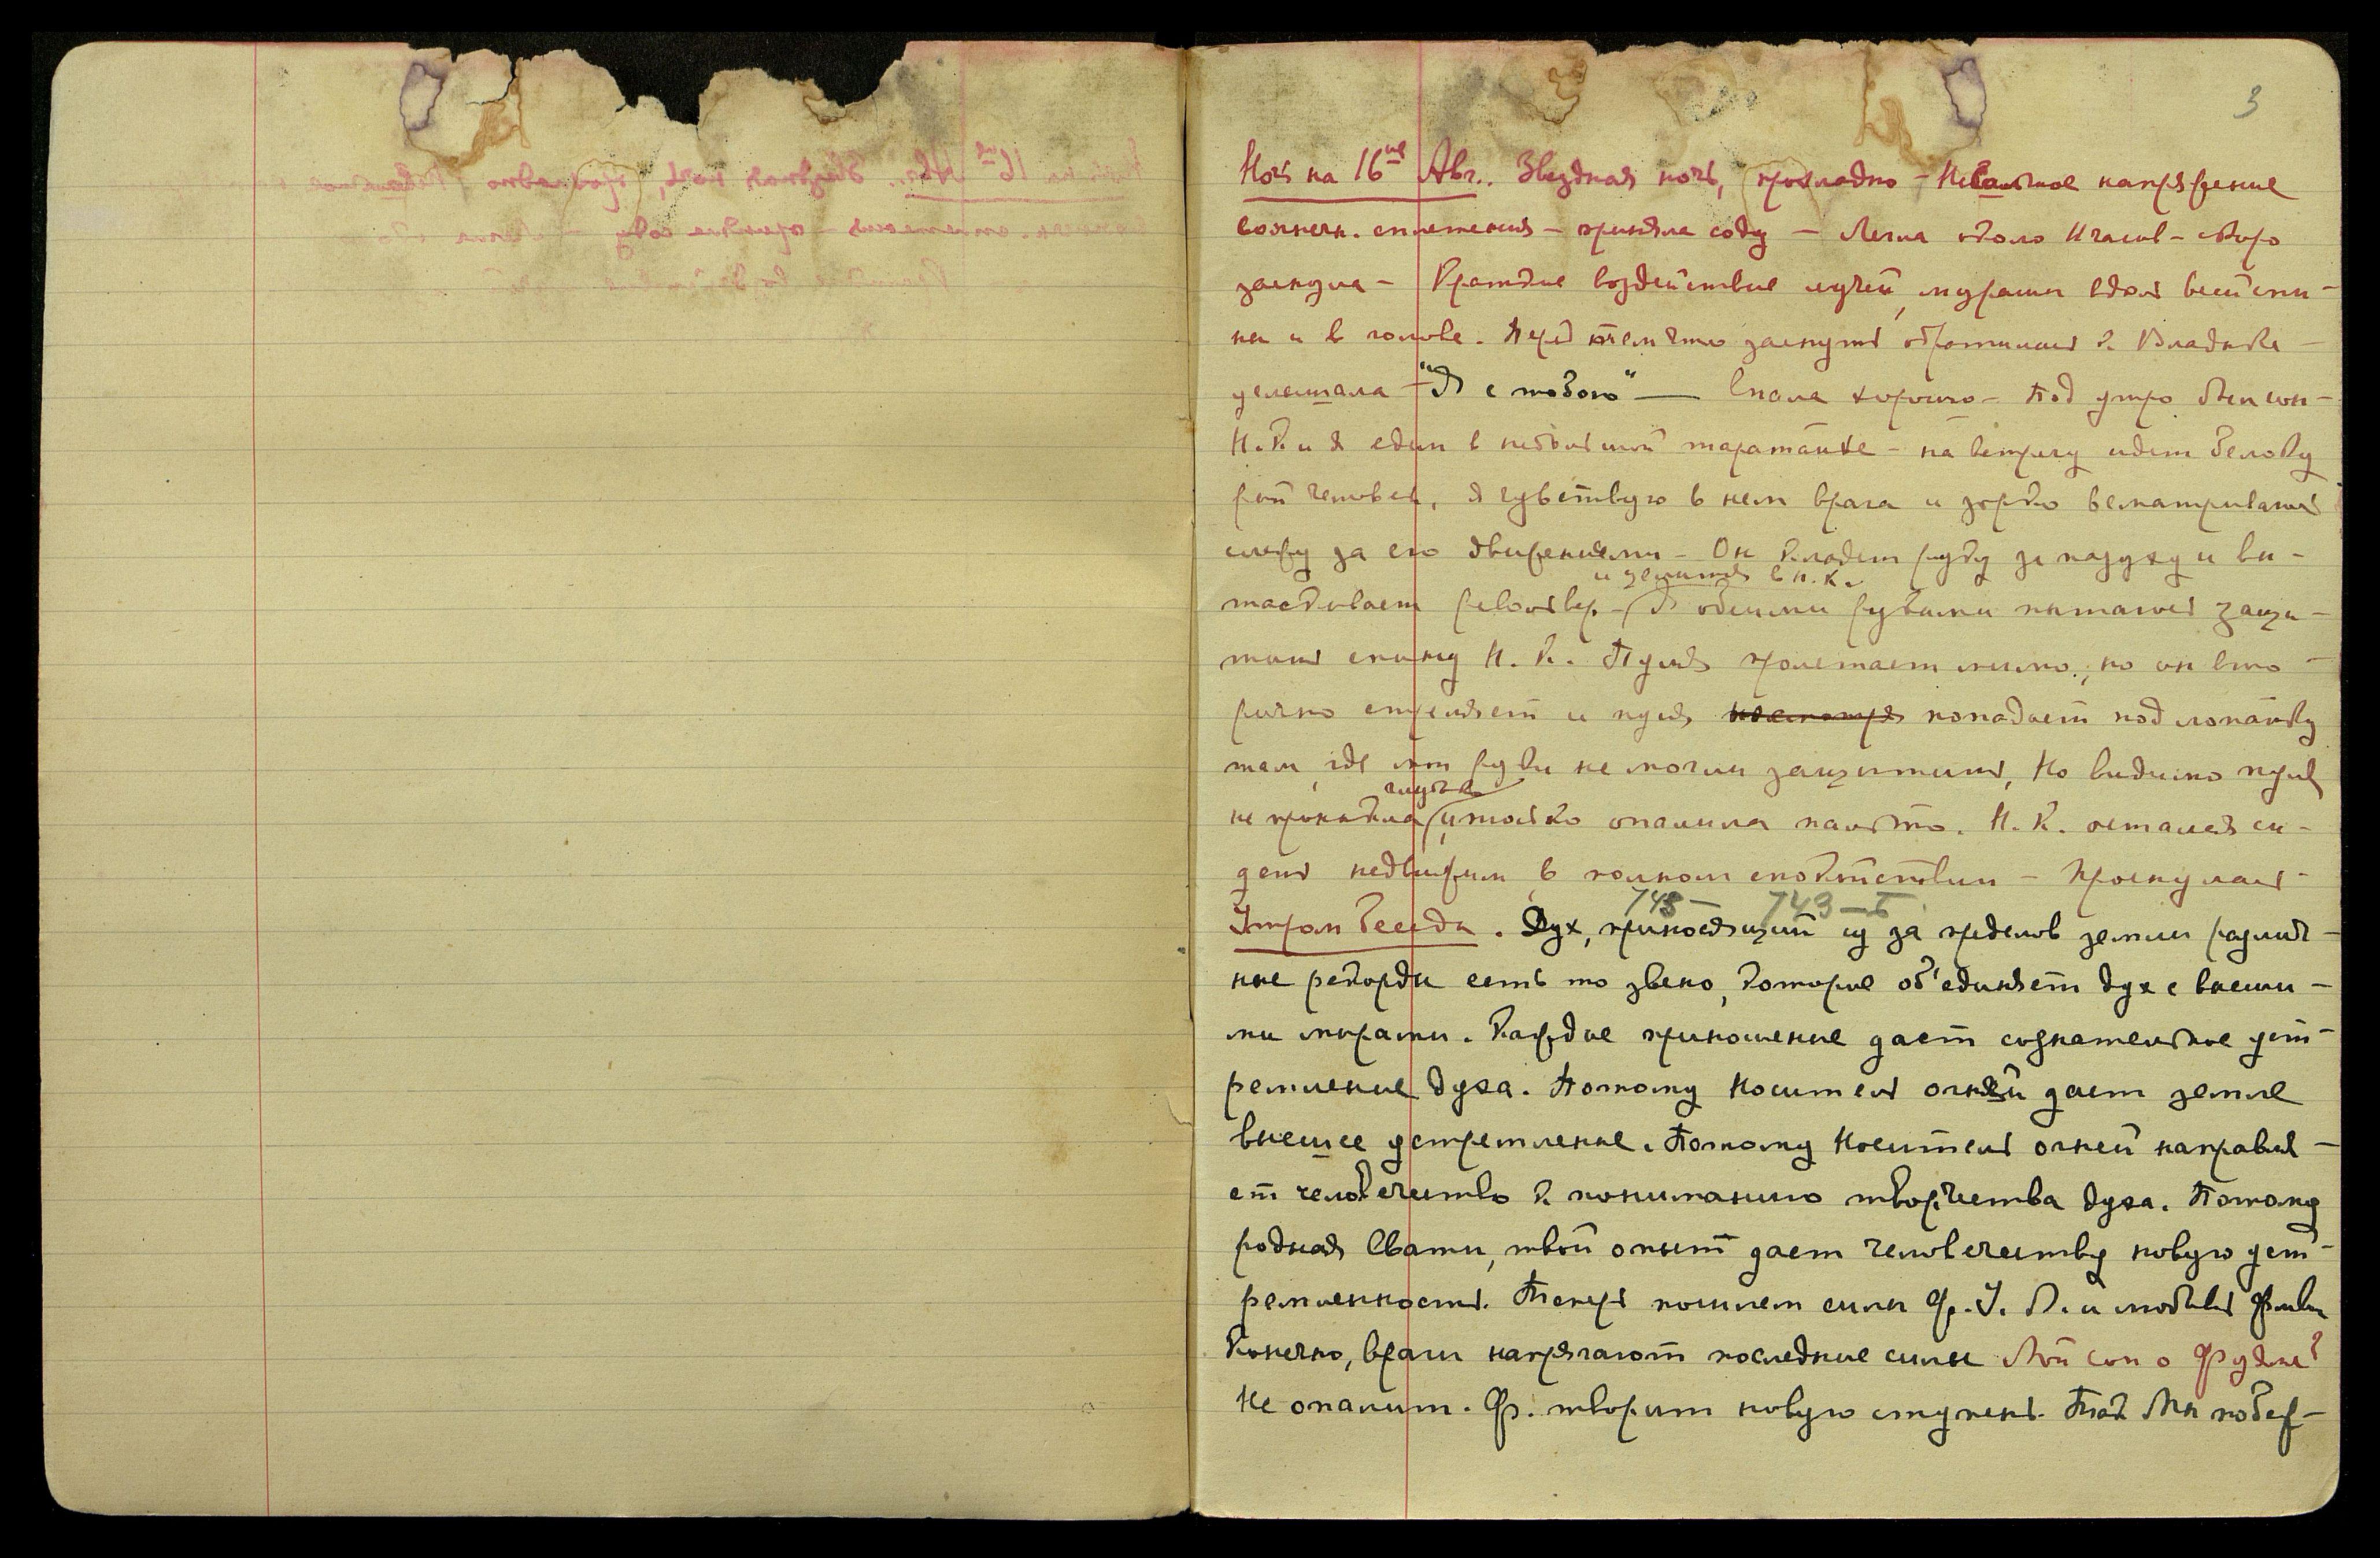 3
Ночь на 16ое Авг.. Звездная ночь, прохладно – Небольшое напряжение
солнечн. сплетения – приняла соду – Легла около 11 часов – скоро
заснула – Краткие воздействие лучей, мураши вдоль всей спи-
ны и в голове. Перед тем что заснуть обратилась к Владыке –
услышала – "Я с тобою" — Спала хорошо – Под утро был сон –
Н.К. и я едем в небольшой таратайке – на встречу идет белоку
рый человек, я чувствую в нем врага и зорко всматриваясь
слежу за его движениями – Он кладет руку за пазуху и вы-
и целится в Н.К.
таскивает револьвер – Я обеими руками пытаюсь защи-
тить спину Н. К. Пуля пролетает мимо, но он вто-
рично стреляет и пуля попадает под лопатку
там, где мои руки не могли защитить, Но видимо пуля
глубоко
не проникла и только опалила пальто. Н. К. остался си-
деть недвижим в полном спокойствии – Проснулась –
743 – 743 – Б
Утром Беседа. Дух, приносящий из за пределов земли различ-
ные рекорды есть то звено, которое об'единяет дух с высши-
ми мирами. Каждое приношение дает сознательное уст-
ремление духа. Потому Носитель огней дает земле
высшее устремление. Потому Носитель огней направля-
ет человечество к пониманию творчества духа. Потому
родная Свати, твой опыт дает человечеству новую уст-
ремленность. Теперь пошлем силы Ф. У. К. и
Конечно, враги напрягают последние силы Мой сон о Фуяме?
Не опалит. Ф. творит новую ступень. Так Мы побер-